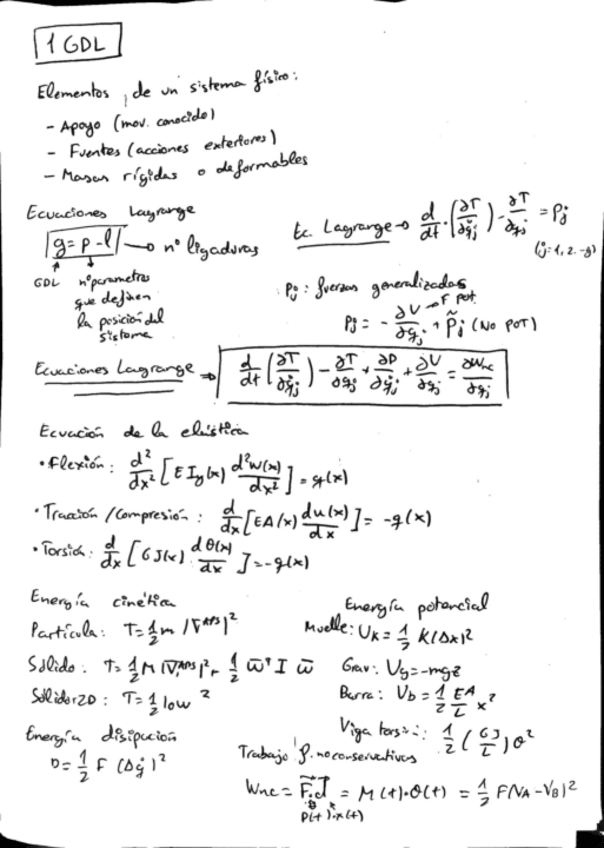 1 GDL
Elementos de un sistema físico:
- Apoyo (mov. conocido)
- Fuentes (acciones exteriores)
- Masas rígidas o deformables
Ecuaciones Lagrange
g = p - l → nº ligaduras
GDL nº parametros
que definen
la posición del
sistema
Ec. Lagrange → d/dt · (∂T/∂q̇j) - ∂T/∂qj = Pj
(j=1, 2.. g)
Pj: fuerzas generalizadas
Pj = - ∂V/∂qj + P̃j (NO POT)
→ F pot.
Ecuaciones Lagrange → d/dt (∂T/∂q̇j) - ∂T/∂qj + ∂D/∂q̇j + ∂V/∂qj = ∂Wnc/∂qj
Ecuación de la elástica
• Flexión: d²/dx² [E Iy(x) d²w(x)/dx²] = q(x)
• Tracción / Compresión: d/dx [EA(x) du(x)/dx] = -q(x)
• Torsión: d/dx [GJ(x) dθ(x)/dx] = -q(x)
Energía cinética
Partícula: T = 1/2 m |v̄ᴬᴮˢ|²
Sólido: T = 1/2 M |v̄ᴬᴮˢ|² + 1/2 ω̄ᵀ I ω̄
Sólido 2D: T = 1/2 I0 ω²
Energía disipación
D = 1/2 F (Δq̇)²
Energía potencial
Muelle: Uk = 1/2 K(Δx)²
Grav: Ug = -mgz
Barra: Ub = 1/2 EA/L x²
Viga torsión: 1/2 (GJ/L) θ²
Trabajo f. no conservativas
Wnc = F·d = M(t)·θ(t) = 1/2 F(VA - VB)²
P(t)·x(t)